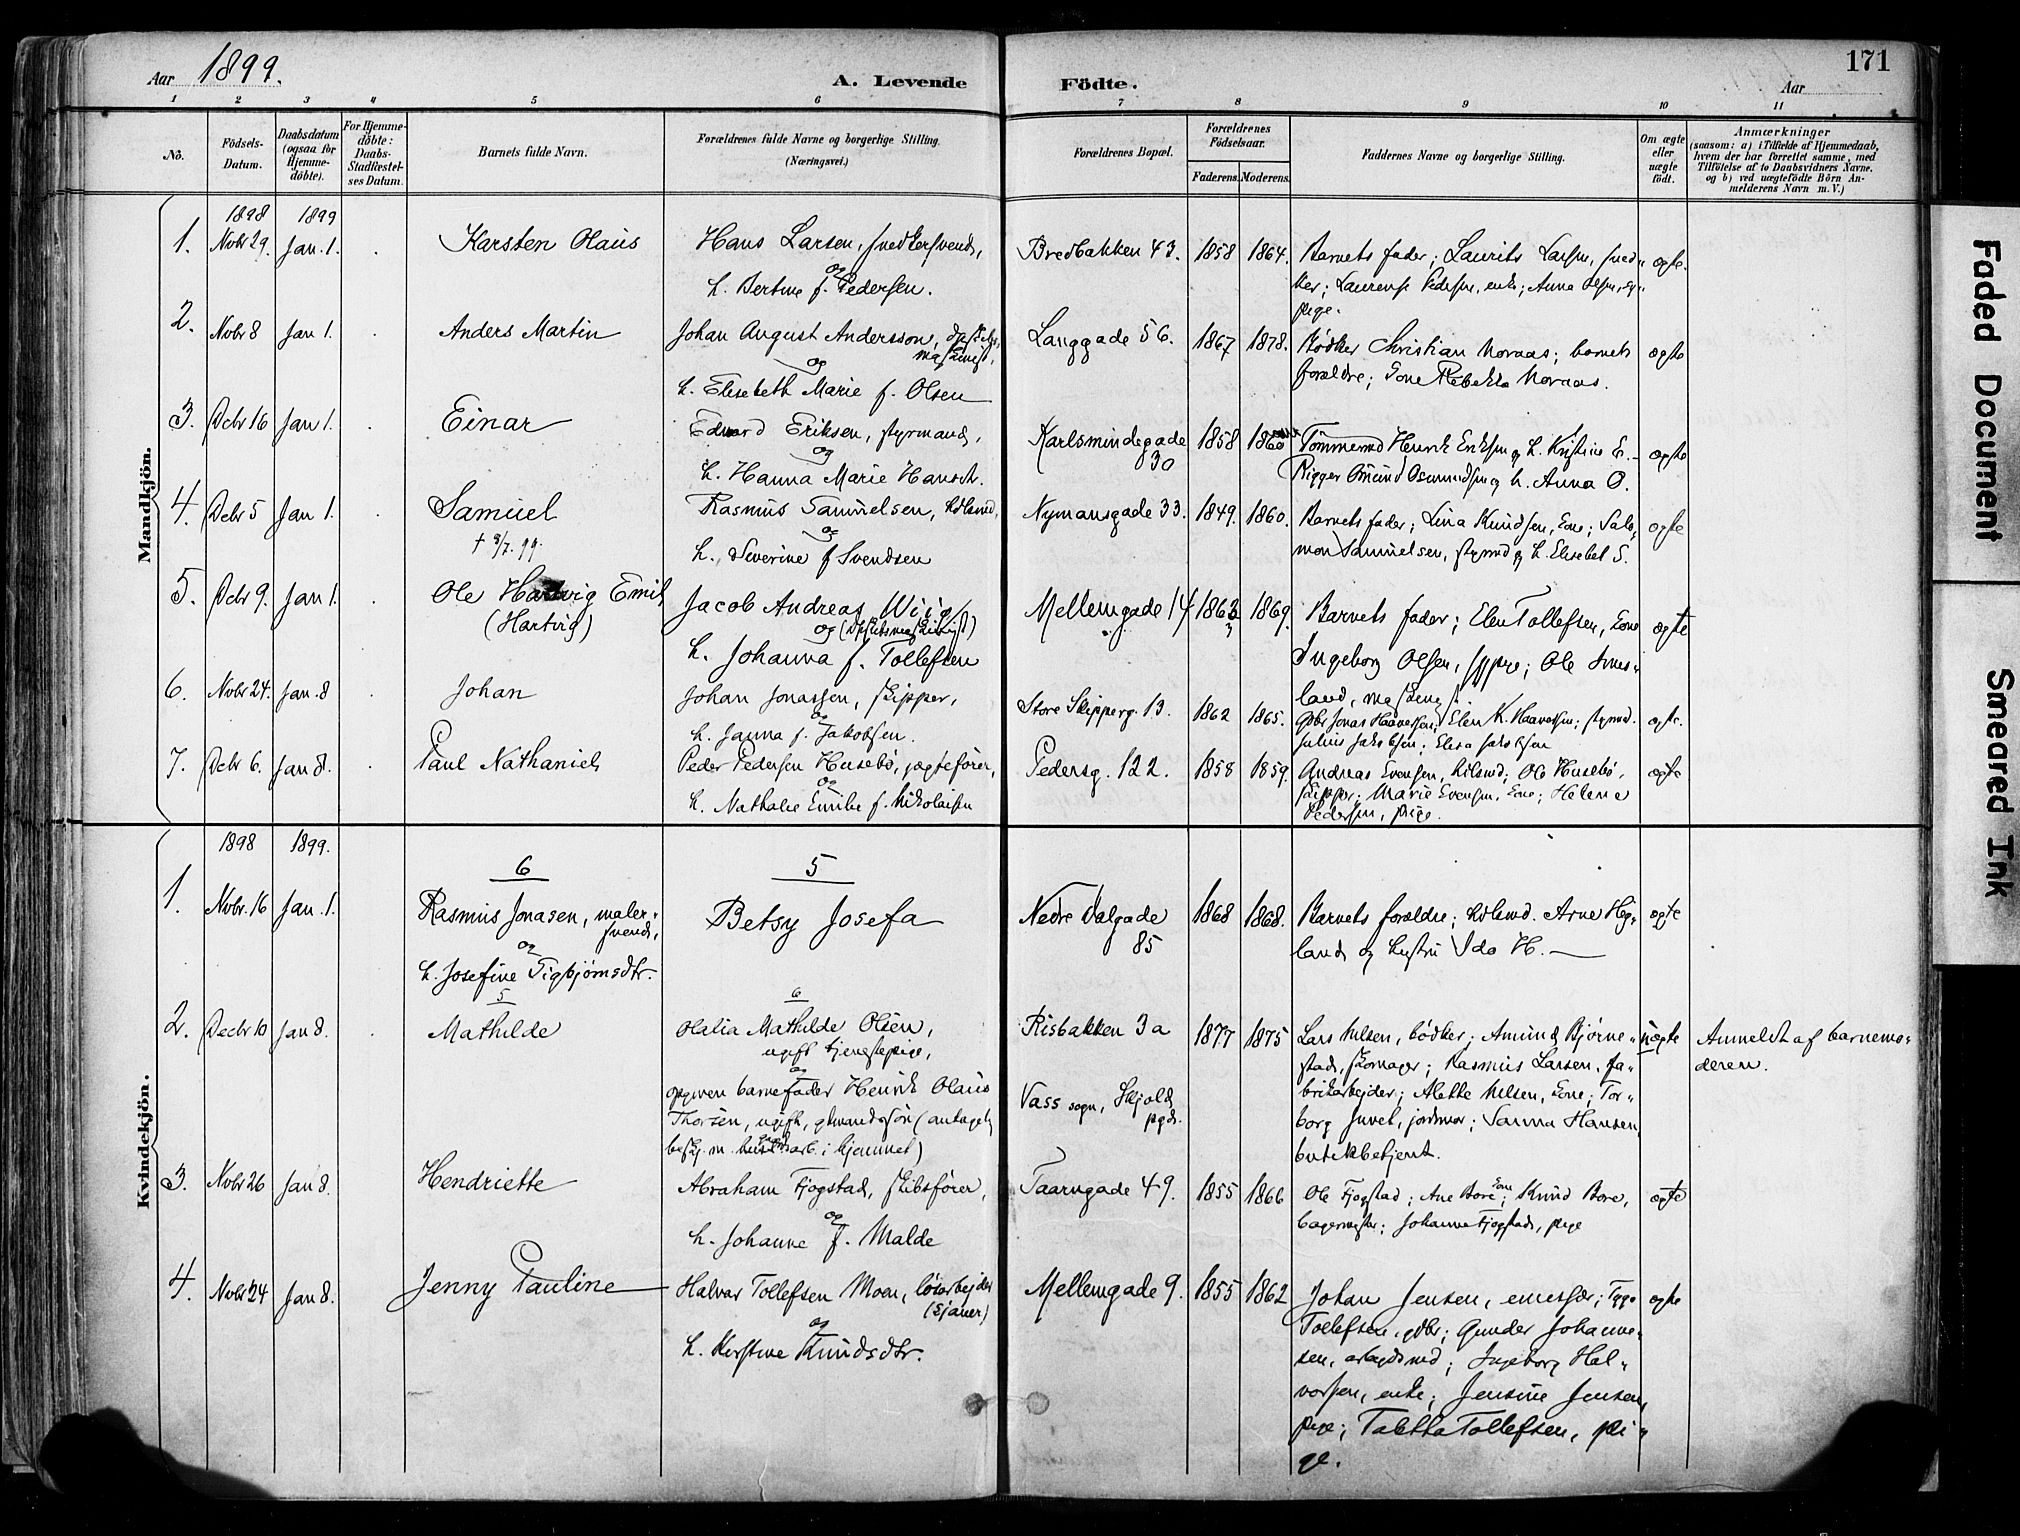 171
Aar 1899.
A. Levende Födte.
Aar
1 2 3 4 5 6 7 8 9 10 11
No.
Födsels-
Datum.
Daabsdatum
(ogsaa for
Hjemme-
döbte).
For Hjemme-
döbte:
Daabs-
Stadfæstel-
ses Datum.
Barnets fulde Navn.
Forældrenes fulde Navne og borgerlige Stilling.
(Næringsvei.)
Forældrenes Bopæl.
Forældrenes
Födselsaar.
Faderens. Moderens.
Faddernes Navne og borgerlige Stilling.
Om ægte
eller
uægte
födt.
Anmærkninger
(saasom: a) i Tilfælde af Hjemmedaab,
hvem der har forrettet samme, med
Tilföielse af to Daabsvidners Navne.
og b) ved uægtefödte Börn An-
melderens Navn m. V.)
Mandkjön.
1898 1899
1. Novbr 29. Jan. 1. Karsten Olaus
Hans Larsen, snedkersvend,
og
h. Bertine f. Pedersen.
Bredbakken 43. 1858 1864.
Barnets fader; Laurits Larsen, sned-
ker; Laurense Pedersen, enke; Anna Olsen,
pige.
ægte.
2. Novbr 8 Jan 1. Anders Martin
Johan August Andersson,
og
h. Elisebeth Marie f. Olsen
Langgade 56. 1867 1878.
Bødker Christian Noraas; barnets
forældre; Gone Rebekka Noraas.
ægte
3. Decbr 16 Jan 1. Einar
Edvard Eriksen, styrmand,
og
h. Hanna Marie Hansdt.
Karlsmindegade
30
1858 1860
Tømmermd Henrik Eriksen og h. Kristine E. -
Rigger Osmund Osmundsen og h. Anna O.
ægte
4. Decbr 5 Jan 1. Samuel
† 8/7. 99.
Rasmus Samuelsen,
og
h. Severine f Svendsen
Nymansgade 33. 1849. 1860.
Barnets fader; Lina Knudsen, kone; Salo-
mon Samuelsen, styrmd og h. Elisebet S.
ægte
5. Decbr 9. Jan 1. Ole Hartvig Emil
(Hartvig)
Jacob Andreas Wiig
og (Dpskibsmaskinist)
h. Johanna f. Tollefsen
Mellemgade 14 1863 1869.
3
Barnets fader; Elen Tollefsen, kone
Ingeborg Olsen, pige; Ole Sines-
land, maskinist.
ægte
6. Novbr 24. Jan. 8 Johan
Johan Jonassen, skipper,
og
h. Janna f. Jakobsen.
Store Skipperg. 13. 1862 1865.
Gdbr Jonas Haavessen; Elen K. Haavessen; styrmd.
Julius Jakobsen; Elisa Jakobsen
ægte.
7. Decbr 6. Jan 8. Paul Nathaniel
Peder Pedersen Husebø, jægtefører,
og
h. Nathalie Emilie f. Nikolaisen
Pedersg. 122. 1858 1859.
Andreas Evensen, Ole Husebø,
skipper; Marie Evensen, kone; Helene
Pedersen, pige.
ægte
Kvindekjön.
1898 1899.
6 5
1. Novbr. 16 Jan. 1.
Rasmus Jonasen, maler-
svend,
og
h. Josefine Tigbjørnsdtr.
Betsy Josefa
Nedre Dalgade
85
1868 1868.
Barnets forældre; Arne Heg-
land og hustru Ida H. —
ægte
5 6
2. Decbr 10 Jan 8. Mathilde
Olalia Mathilde Olsen,
ugift tjenestepige,
og
opgiven barnefader Henrik Olaus
Thorsen, ugift, gbmandssøn (antagelig
besk. m. gaardsarb. i hjemmet)
Risbakken 3a
Vass sogn, Skjold
pgd.
1877 1875
Lars Nilsen, bødker; Amund Bjørne-
stad, skomager; Rasmus Larsen, fa-
brikarbejder; Alette Nilsen, kone; Tor-
borg Juvet, jordmor; Sanna Hansen,
butikbetjent.
uægte
Anmeldt af barnemo-
deren.
3. Novbr 26 Jan 8. Hendriette
Abraham Fjogstad, skibsfører,
og
h. Johanne f. Malde
Taarngade 49. 1855 1866
Ole Fjogstad; Ane Bore, kone; Knud Bore,
bagermester; Johanne Fjogstad, pige
ægte
4. Novbr 24 Jan 8. Jenny Pauline
Halvar Tollefsen Moen, løsarbejder
(Sjauer)
og
h. Kerstine Knudsdtr.
Mellemgade 9. 1855 1862
Johan Jensen, emissær;
Tollefsen, gdbr; Gunder Johanne-
sen, arbejdsmd; Ingeborg Hal-
vorsen, enke; Jensine Jensen,
pige; Tabitha Tollefsen, pi-
ge.
ægte
Faded Document
Smeared Ink